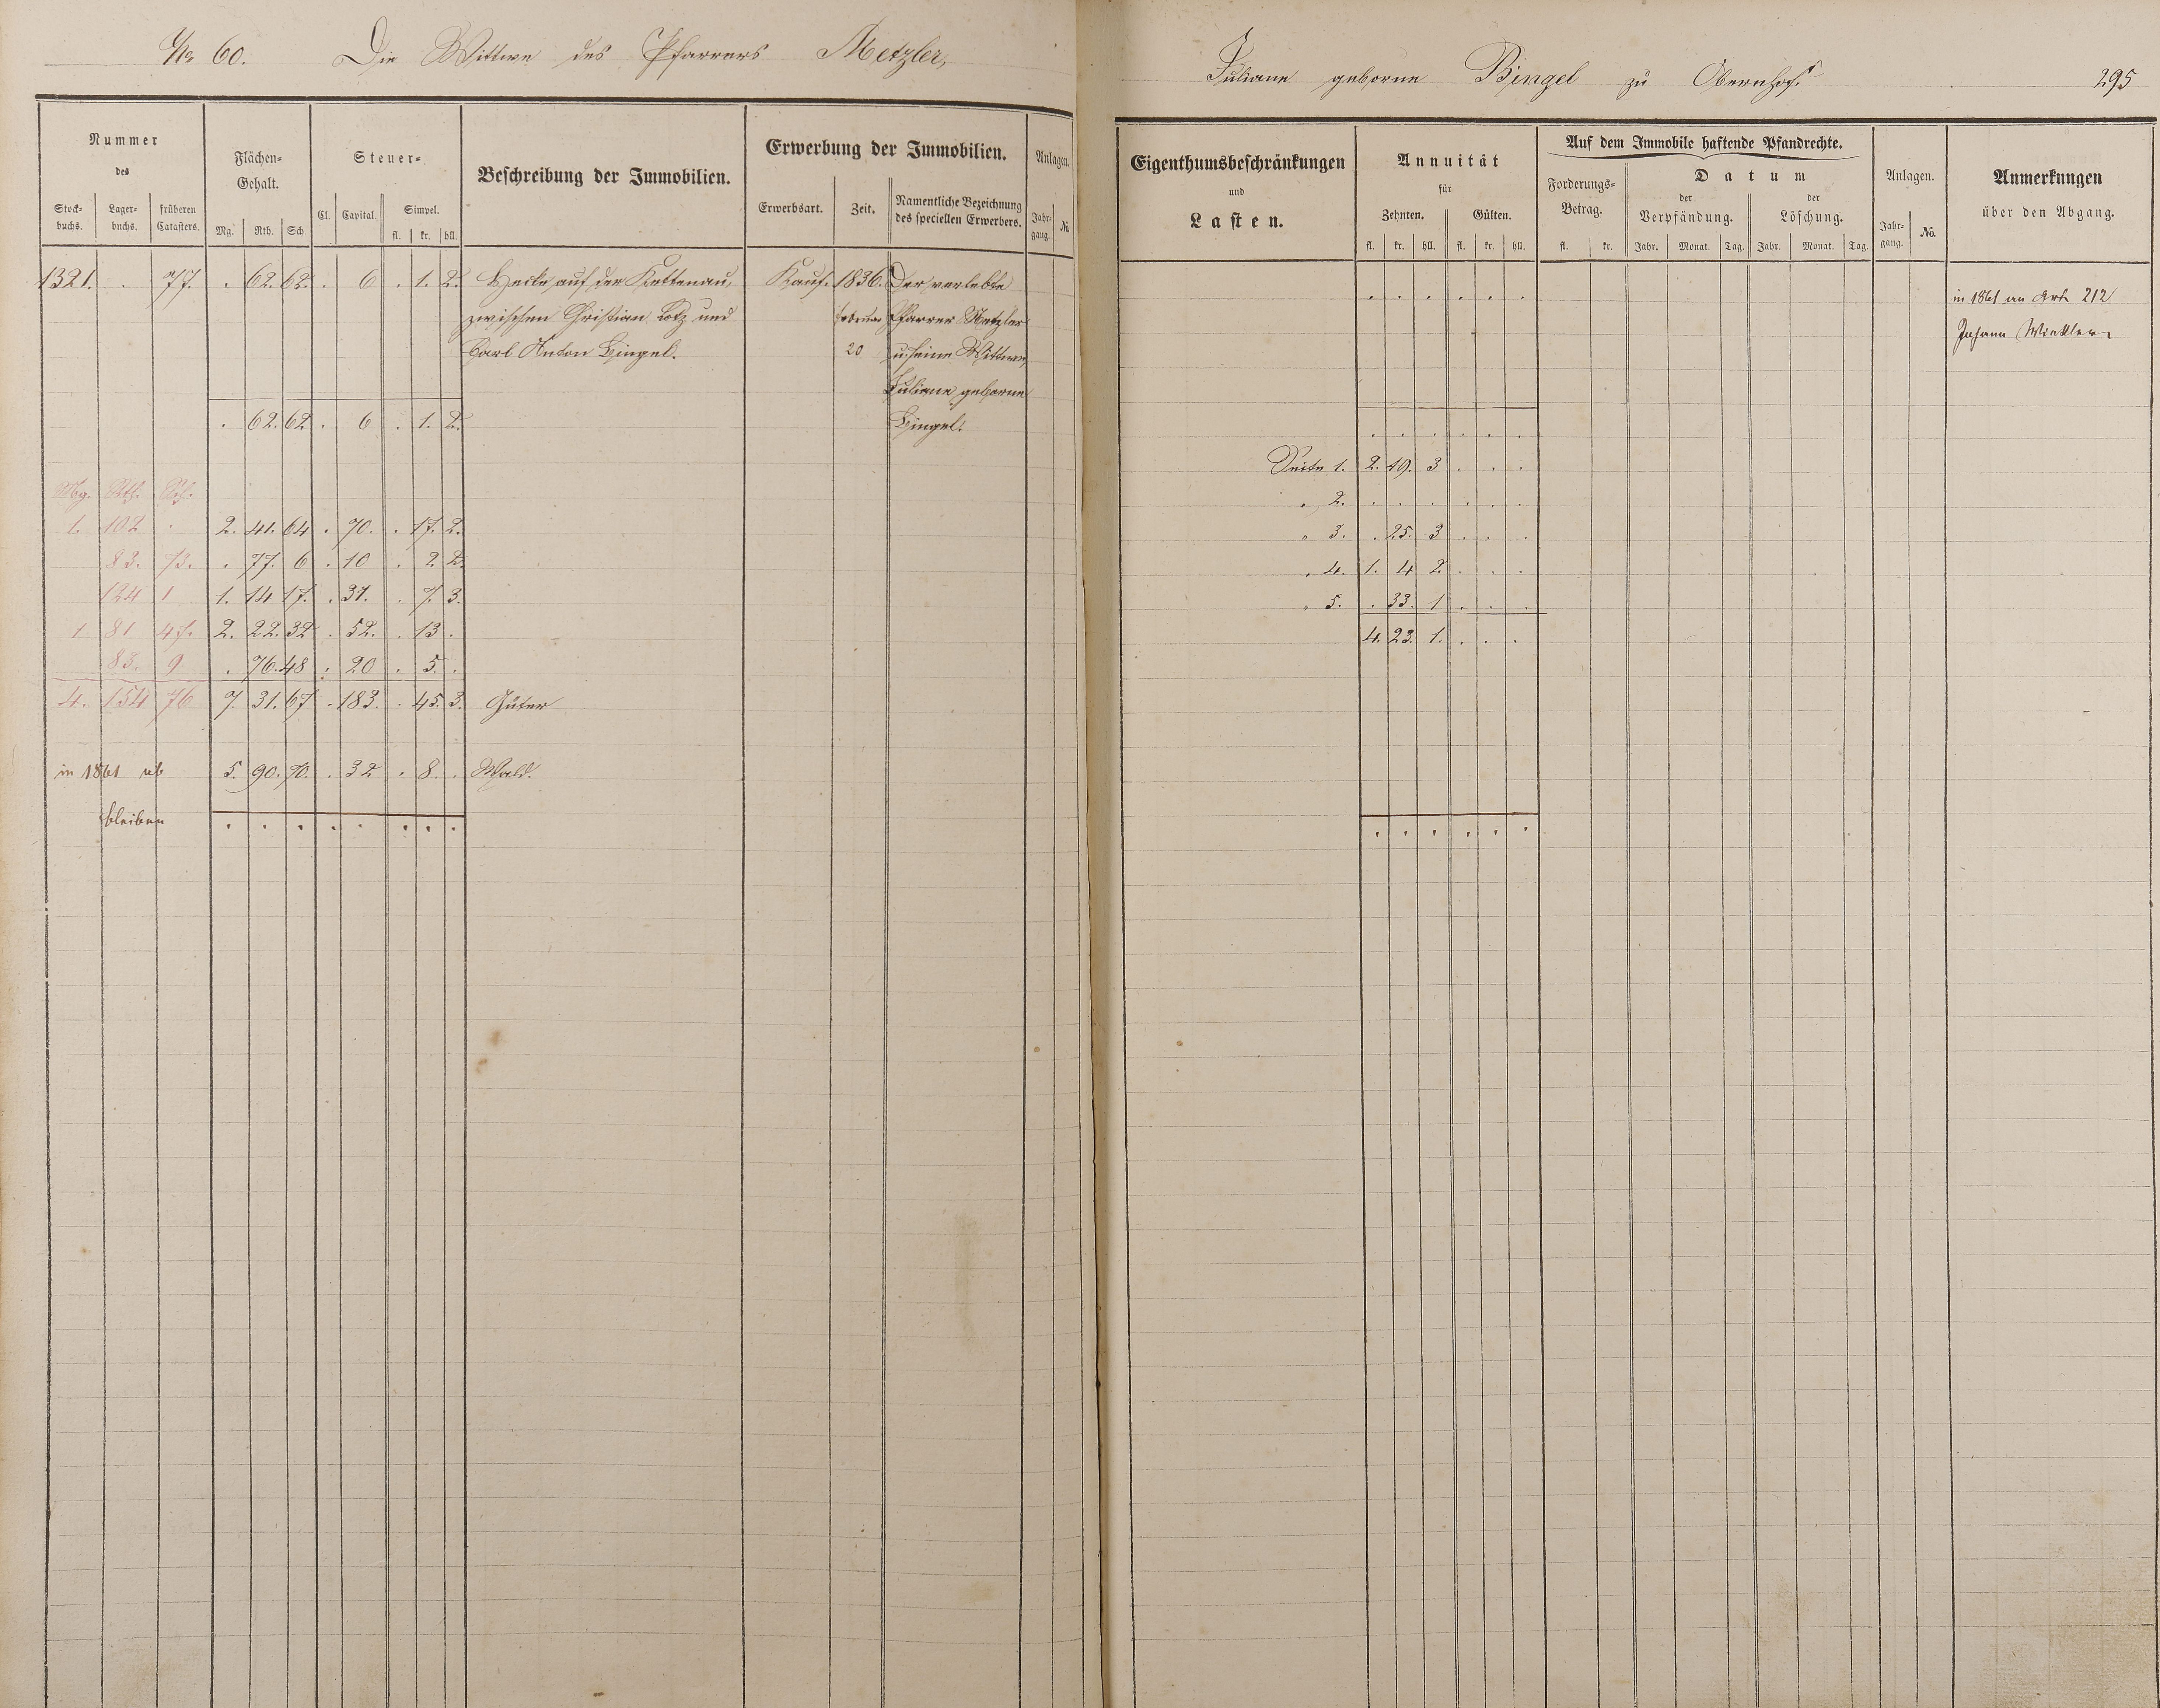 No 60. Die Wittwe des Pfarrers Metzler,
Juliane geborne Bingel zu Obernhof.
295
Nummer
des
Stock-
buchs.
Lager-
buchs.
früheren
Catasters.
Flächen-
Gehalt.
Mg. Rth. Sch.
Steuer-
Cl. Capital. Simpel.
fl. kr. hll.
Beschreibung der Immobilien.
Erwerbung der Immobilien.
Erwerbsart. Zeit. Namentliche Bezeichnung
des speciellen Erwerbers.
Anlagen.
Jahr-
gang. No.
1321. . 77. . 62. 62. . 6 . 1. 2. Hecke auf der Kettenau, Kauf. 1836. Der verlebte
zwischen Christian Lotz und Februar Pfarrer Metzler
Carl Anton Bingel. 20 u. seine Wittwe,
Juliane geborne
. 62. 62 . 6 . 1. 2. Bingel.
Mg. Rth. Sch.
1. 102 . 2. 41. 64 . 70. . 17. 2.
83. 73. . 77. 6 . 10 . 2 2.
124 1 1. 14 17. . 31. . 7. 3.
1 81 47. 2. 22. 32 . 52. . 13 .
83. 9 . 76. 48 . 20 . 5. .
4. 154 76 7. 31. 67 . 183. . 45. 3. Güter
in 1861 ab 5. 90. 70. . 32 . 8. . Wald.
bleiben . . . . . . . .
Eigenthumsbeschränkungen
und
Lasten.
Annuität
für
Zehnten. Gülten.
fl. kr. hll. fl. kr. hll.
Auf dem Immobile haftende Pfandrechte.
Forderungs-
Betrag.
fl. kr.
Datum
der
Verpfändung.
der
Löschung.
Jahr. Monat. Tag. Jahr. Monat. Tag.
Anlagen.
Jahr-
gang. No.
Anmerkungen
über den Abgang.
. . . . . . in 1861 an Art. 212
Johann Winkler
. . . . . .
Seite 1. 2. 19. 3 . . .
" 2. . . . . . .
" 3. . 25. 3 . . .
" 4. 1. 4 2 . . .
" 5. . 33. 1 . . .
4. 23. 1. . . .
. . . . . .